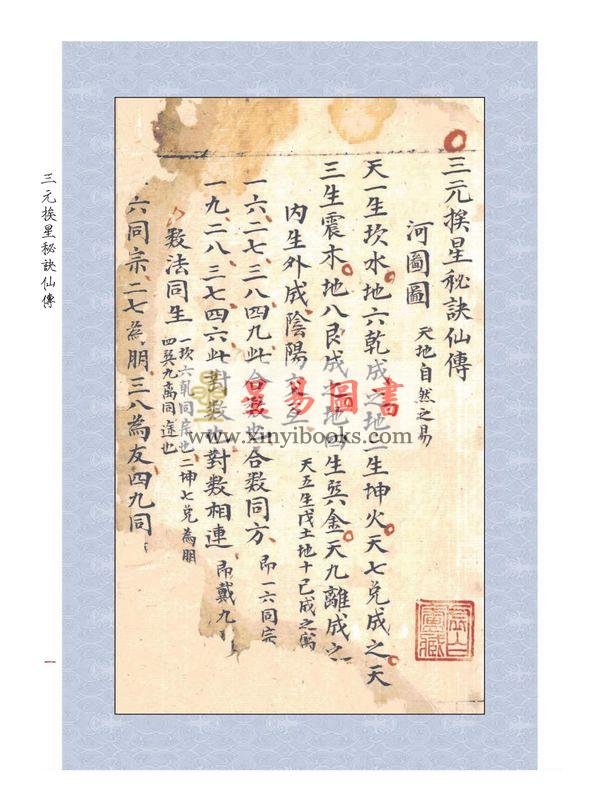 三元挨星秘訣仙傳
河圖圖 天地自然之易
天一生坎水地六乾成之地二生坤火天七兌成之天
三生震木地八艮成之地四生巽金天九離成之
內生外成陰陽交互 天五生戊土地十己成之寓
一六二七三八四九此合數也合數同方 即一六同宗
一九二八三七四六此對數也對數相連 即戴九
數法同生 一坎六乾同宗也二坤七兌為朋
四巽九離同途也
六同宗二七為朋三八為友四九同
三元挨星秘訣仙傳
一
星易圖書
www.xinyibooks.com